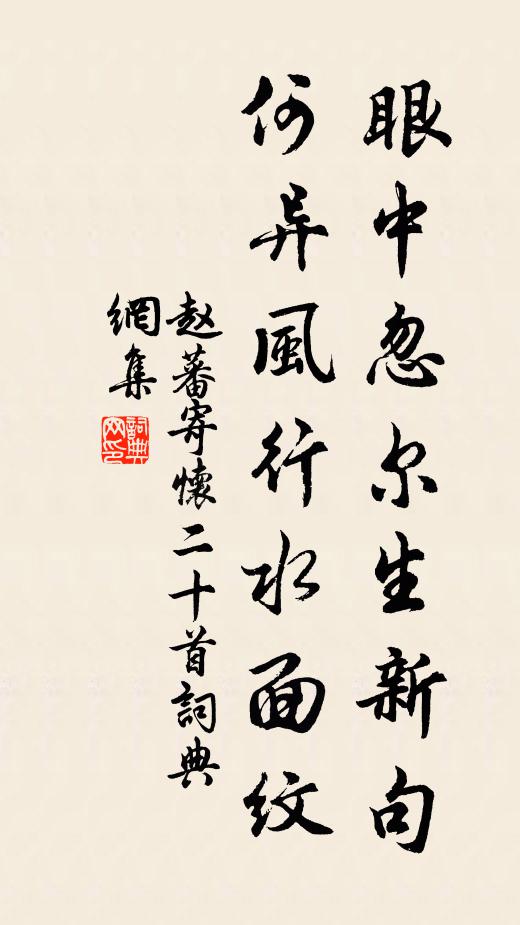 眼中忽尔生新句
何异風行水面纹
赵蕃寄懷二十首詞典
網集
詞典网印